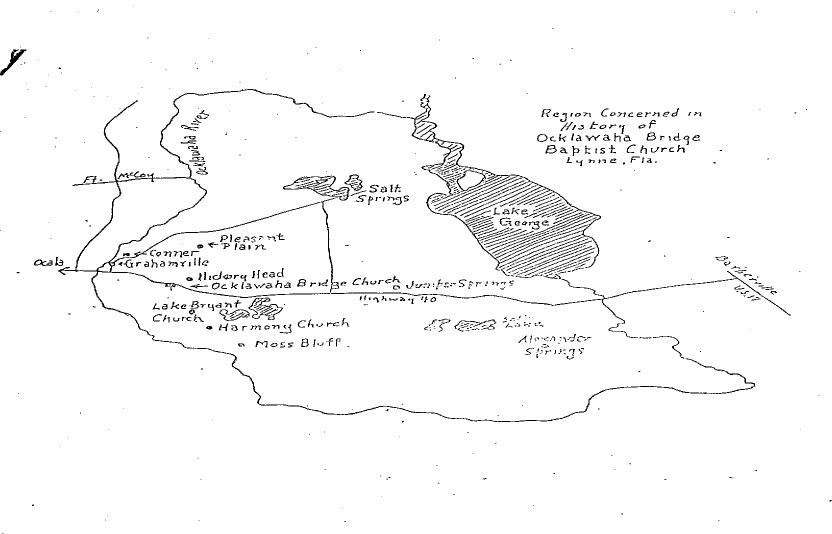 y
Region Concerned in
History of
Ocklawaha Bridge
Baptist Church
Lynne, Fla.
Ocklawaha River
Ft. McCoy
Salt
Springs
Lake
George
Pleasant
Plain
Conner
Grahamville
Ocala
Hickory Head
Ocklawaha Bridge Church
Juniper Springs
Highway 40
Barberville
U.S. 17
Lake Bryant
Church
Harmony Church
Moss Bluff.
Lake
Alexander
Springs